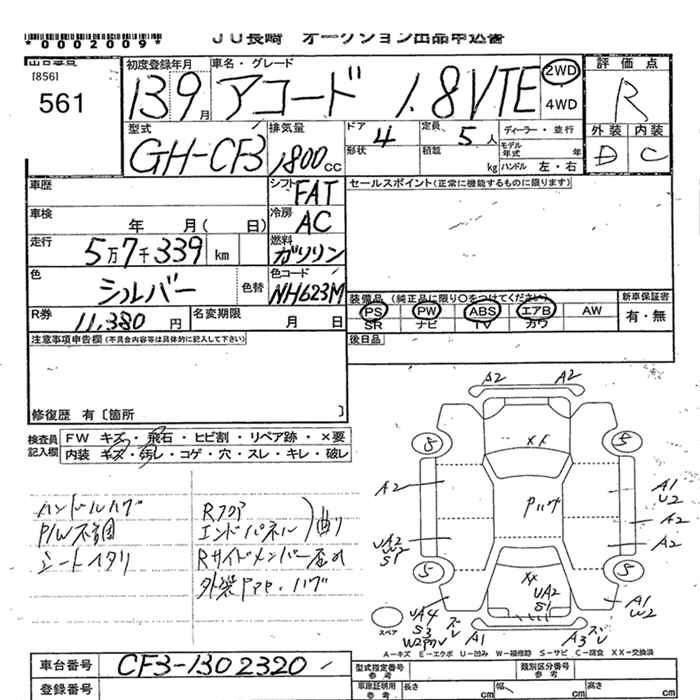 *0002009*
JU長崎 オークション出品申込書
出品番号
[856]
561
初度登録年月 車名・グレード
13 9月 アコード 1.8VTE
2WD
4WD
評価点
R
外装 内装
D C
型式 排気量 ドア 定員 ディーラー・並行
GH-CF3 1800cc 4 5人
形状 積載 kg モデル年式 年
ハンドル 左・右
車歴
シフト FAT
セールスポイント(正常に機能するものに限ります)
車検 年 月( 日)
冷房 AC
走行 5万7千339 km
燃料 ガソリン
色 シルバー 色替
色コード NH623M
装備品(純正品に限り○をつけてください) 新車保証書
PS PW ABS エアB AW 有・無
SR ナビ TV カワ
R券 11,380円 名変期限 月 日
注意事項申告欄(不具合内容等は具体的に記入して下さい)
後日品
修復歴 有〔箇所 〕
検査員記入欄
FW キズ・飛石・ヒビ割・リペア跡・×要
内装 キズ・汚レ・コゲ・穴・スレ・キレ・破レ
ハンドルハゲ
P/W不良
シートイタリ
Rフロア
エンドパネル 曲り
Rサイドメンバー
A2 A2
S S
XX
A2
A1
U2
A2
A2
UA2
S1
S S
XX
UA2
S1
A1
W2
スペア
UA4
S3
A1
A3
A-キズ E-エクボ U-凹み W-補修跡 S-サビ C-腐食 XX-交換済
車台番号 CF3-1302320
登録番号
型式指定番号 参考 類別区分番号 参考
車庫証明用 参考 長さ cm 幅 cm 高さ cm